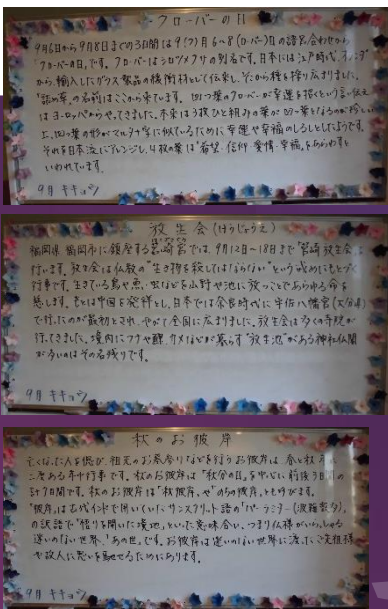 クローバーの日
9月6日から9月8日までの3日間は9(ク)月6~8(ローバー)の語呂合わせから
「クローバーの日」です。クローバーはシロツメクサの別名です。日本には江戸時代、オランダ
から輸入したガラス製品の緩衝材として伝来し、そこから種を採り広まりました。
「詰め草」の名前はここから来ています。四つ葉のクローバーが幸運を招くという言い伝え
はヨーロッパからやってきました。本来は3枚ひと組みの葉が四つ葉となるのが珍しい
上、四つ葉の形がマルタ十字に似ているために幸運や幸福のしるしとしたようです。
それを日本流にアレンジし、4枚の葉は"希望・信仰・愛情・幸福"をあらわすと
いわれています。
9月 キキョウ
放生会(ほうじょうえ)
福岡県福岡市に鎮座する筥崎宮では、9月12日~18日まで"筥崎放生会"
行います。放生会は仏教の"生き物を殺してはならない"という戒めにもとづく
行事です。生きている鳥や魚、虫などを山野や池に放つことであらゆる命を
慈します。もとは中国を発祥とし、日本では奈良時代に宇佐八幡宮(大分県)
で行ったのが最初とされ、やがて全国に広まりました。放生会は多くの寺院が
行ってきました。境内にフナや鯉、カメなどが暮らす"放生池"がある神社仏閣
が多いのはその名残りです。
9月 キキョウ
秋のお彼岸
亡くなった人を偲び、祖先のお墓参りなどを行うお彼岸は、春と秋、年に
二度ある年中行事です。秋のお彼岸は「秋分の日」を中心に、前後3日間の
計7日間です。秋のお彼岸は「秋彼岸」や「のちの彼岸」とも呼びます。
「彼岸」は古代インドで用いていたサンスクリット語の「パーラミター(波羅蜜多)」
の訳語で"悟りを開いた境地"といった意味合い、つまり仏様がいらっしゃる
迷いのない世界、「あの世」です。お彼岸は迷いのない世界に渡ったご先祖様
や故人に思いを馳せるためにあります。
9月 キキョウ